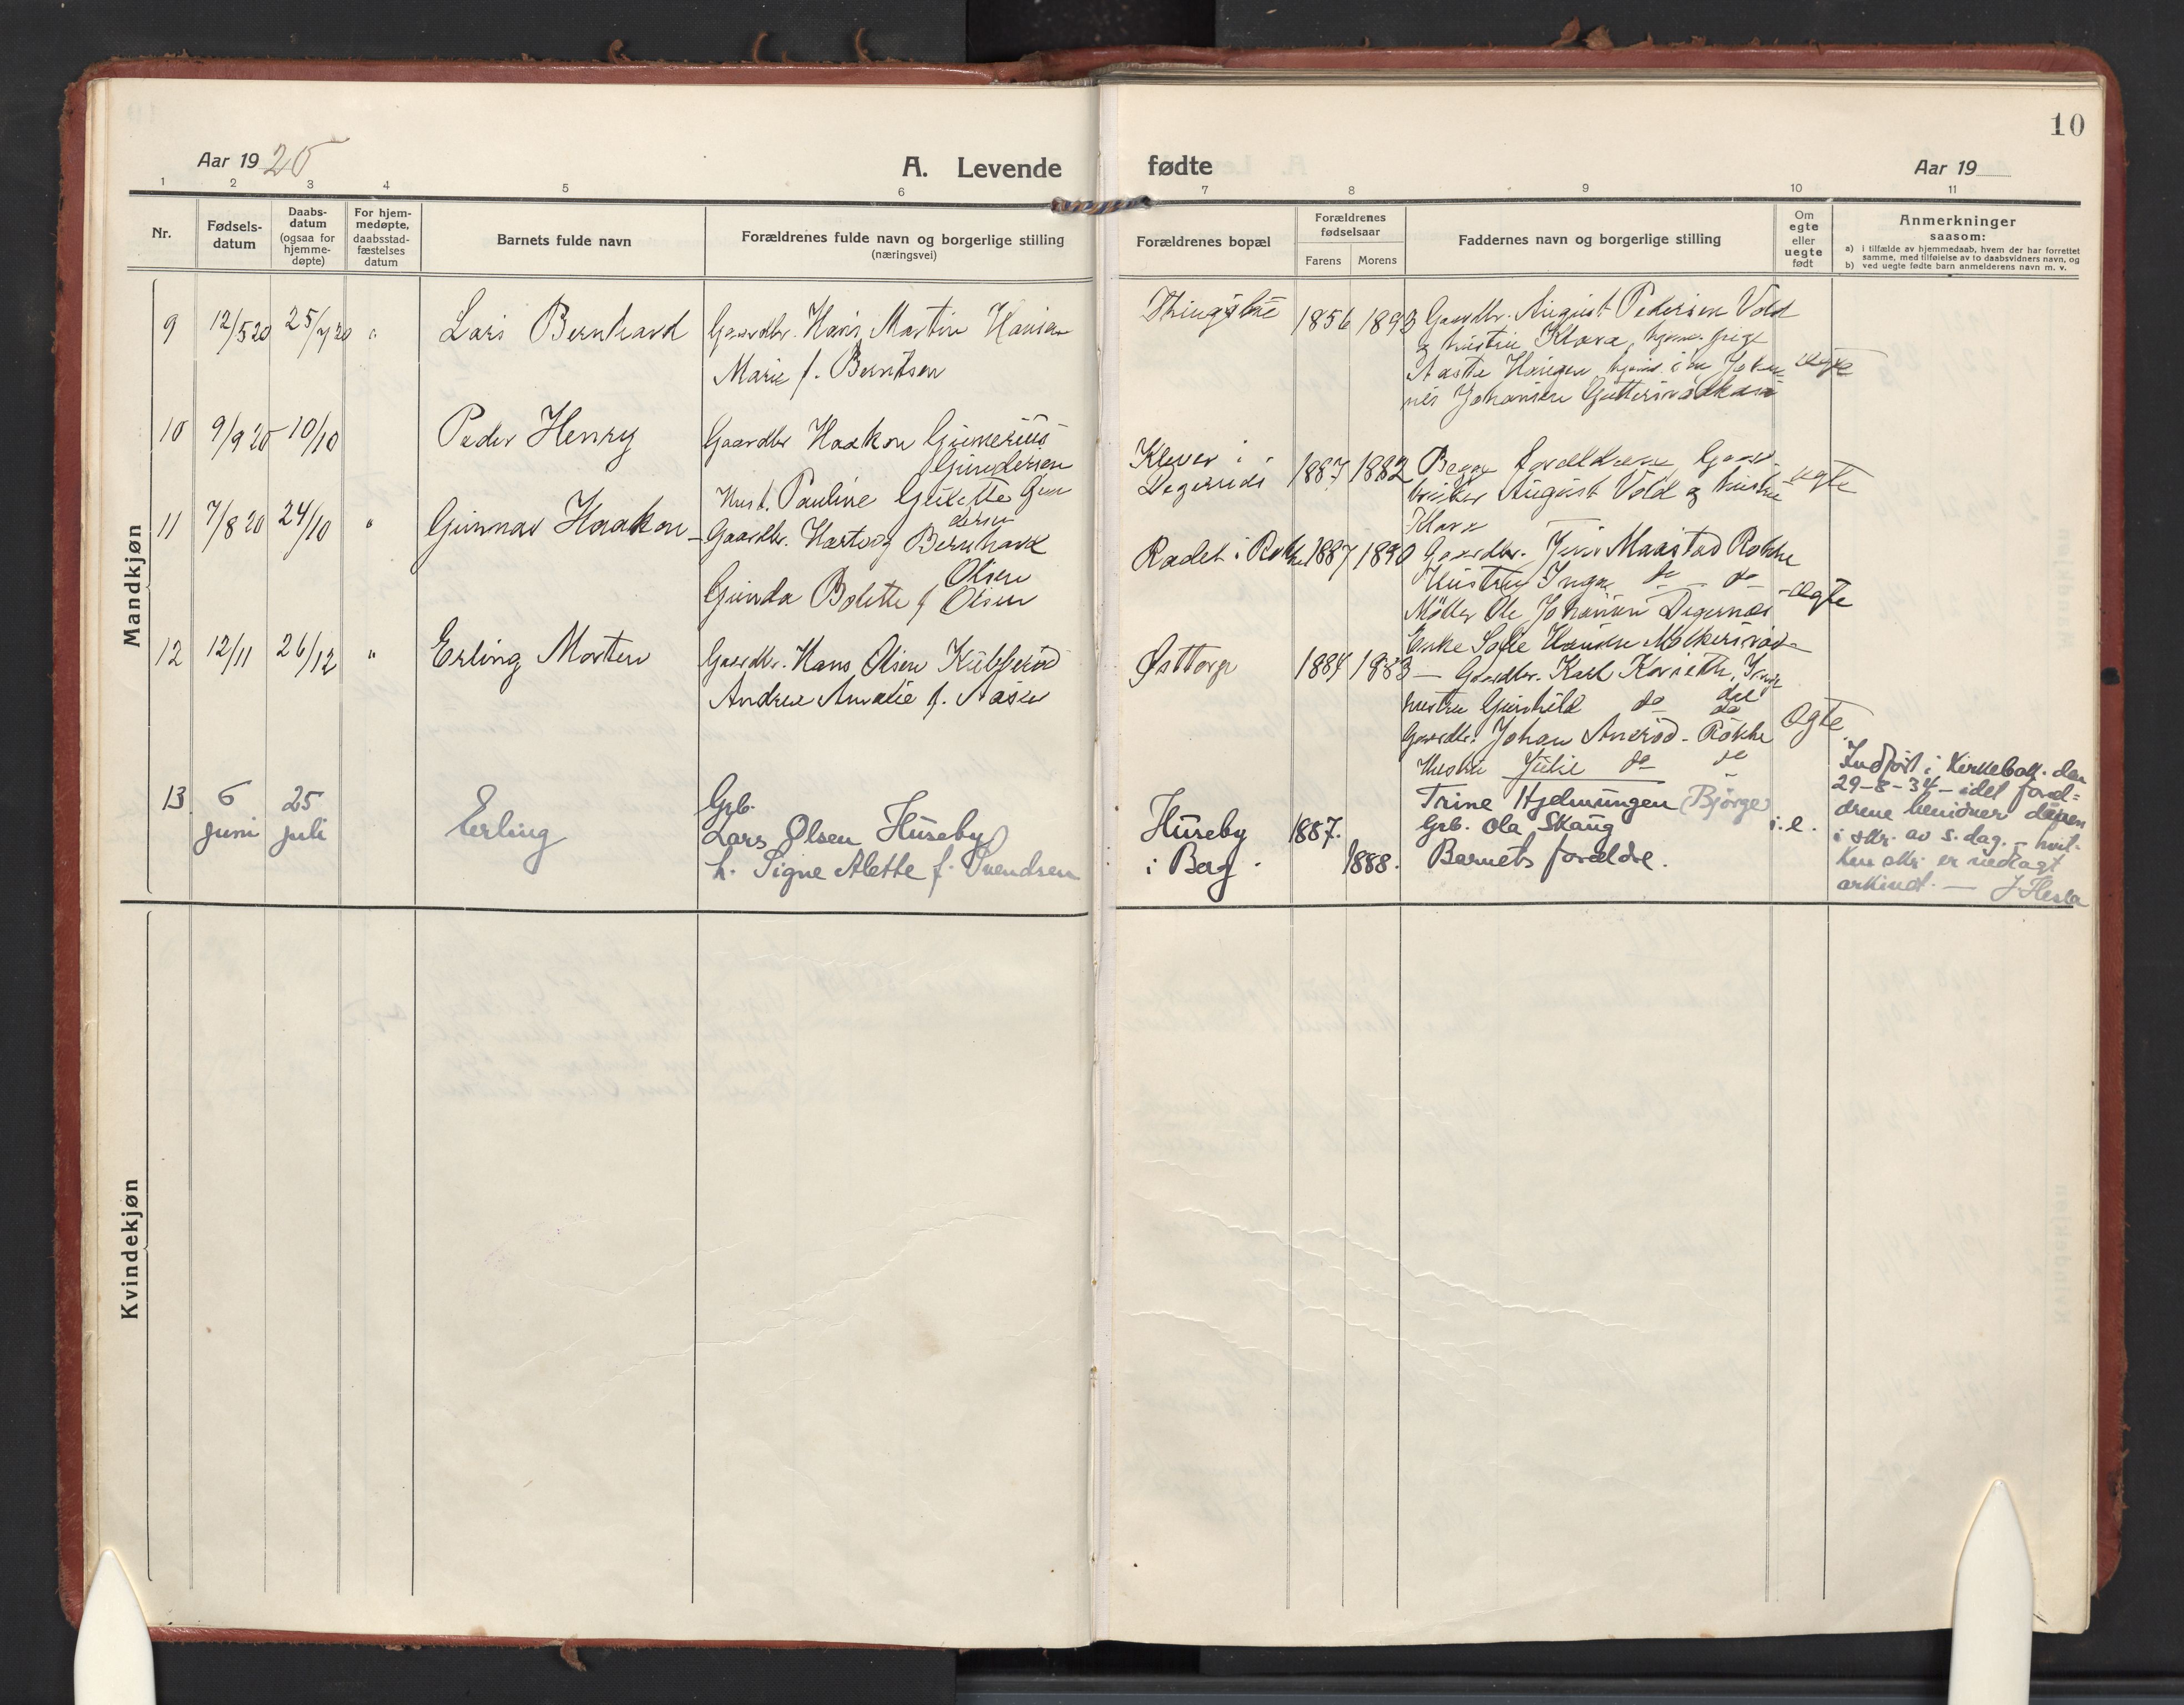 10
Aar 19 20
A. Levende fødte
Aar 19
1 2 3 4 5 6 7 8 9 10 11
Nr.
Fødsels-
datum
Daabs-
datum
(ogsaa for
hjemme-
døpte)
For hjem-
medøpte,
daabsstad-
fæstelses
datum
Barnets fulde navn
Forældrenes fulde navn og borgerlige stilling
(næringsvei)
Forældrenes bopæl
Forældrenes
fødselsaar
Farens Morens
Faddernes navn og borgerlige stilling
Om
egte
eller
uegte
født
Anmerkninger
saasom:
a) i tilfælde av hjemmedaab, hvem der har forrettet
samme, med tilføielse av to daabsvidners navn, og
b) ved uegte fødte barn anmelderens navn m. v.
Mandkjøn
9 12/5 20 25/7 20 " Lars Bernhard
Gaardbr. Hans Martin Hansen
Marie f. Berntsen
1856 1893
Gaardbr. August Pedersen Vold
og hustru Klara, hjemv. pige
Aaste
Johansen
10 9/9 20 10/10 Peder Henry
Gaardbr Haakon
Gundersen
Hust. Pauline Gun
dersen
Klever i
1887 1882
Begge forældrene, Gaard
bruker August Vold og hustru
Klara
ægte
11 7/8 20 24/10 " Gunnar Haakon
Gaardbr. Hartvig Bernhard
Olsen
Gunda Bolette f Olsen
Rødet i Rokke
1887 1890
Gaardbr. Maastad Rokke
Hustru Inga do - do
Møller Ole Johansen
Enke
ægte
12 12/11 26/12 " Erling Morten
Gaardbr. Hans Olsen
Andrea Amalie f. Aasen
Østtorp
1884 1883
Gaardbr. Karl
hustru Gunhild do do
Gaardbr. Johan - Rokke
Hustru Julie do do
Ægte
13 6 juni 25 juli Erling
Grb.
Lars Olsen Huseby
h. Signe Alette f. Svendsen
Huseby
i Bag.
1887.
1888.
Trine Hjelmungen (Bjørge)
Grb. Ola Skaug
Barnets forældre.
Indført i Kirkebok. den
29-8-34 - idet foræl=
drene bevidner dåpen
i skr. av s. dag. - hvil-
ken skr. er nedlagt
arkivet. - J Hesla
Kvindekjøn